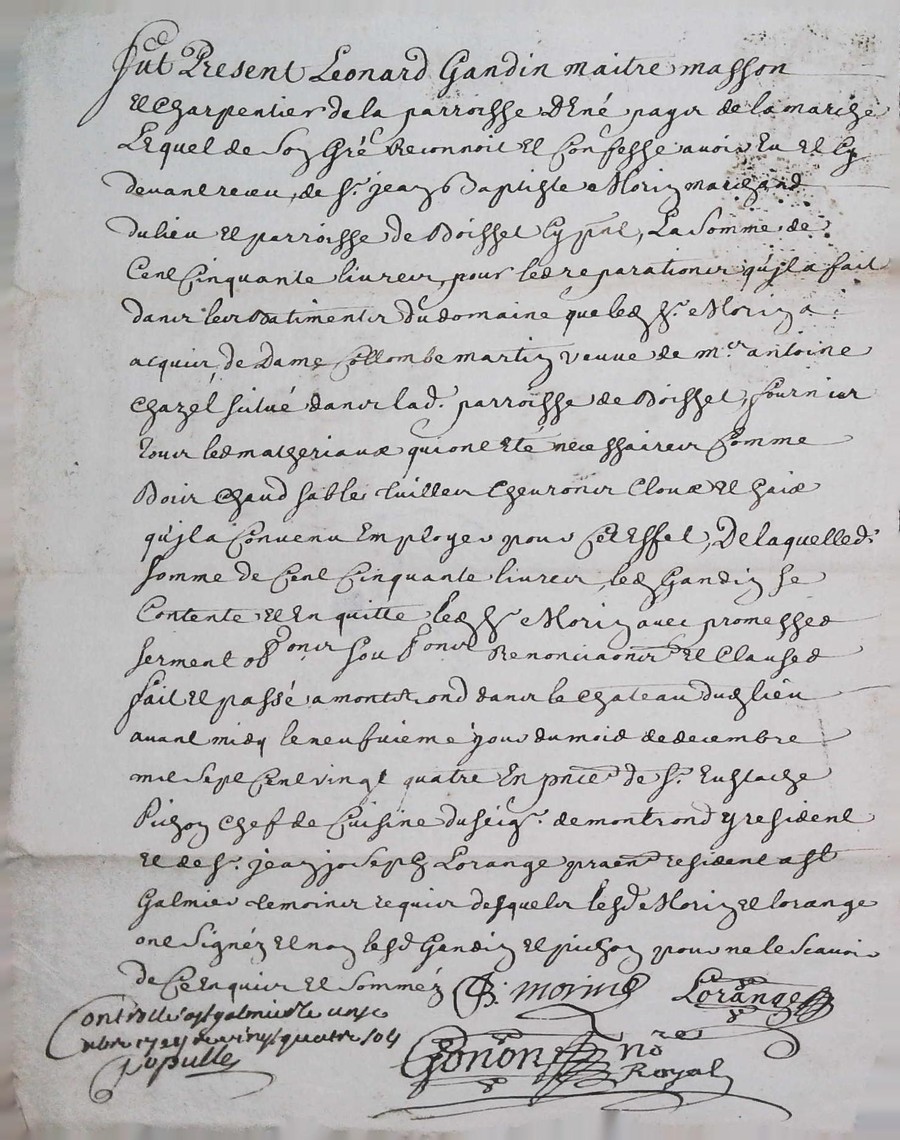 fut Present Leonard Gandin maitre masson
et Charpentier de la parroisse D'Ené payis de la marche
Lequel de Son Gré Reconnoit et Confesse avoir Eu et Cy
devant receu, de Sr. jean Baptiste Morin marchand
du lieu et parroisse de Boisset Cy pnt, La Somme de
Cent Cinquante livres, pour les reparations qu'jl a fait
dans les Batiments du domaine que led Sr. Morin a
acquis, de Dame Collombe martin veuve de mre antoine
chazel situé dans lad. parroisse de Boisset, fournir
tous les matheriaux qui ont eté necessaires Comme
Bois chaud sable tuilles chevrons Cloux et Gaix
qu'jl a Convenu Employer pour Cet Effet, De laquelled.
somme de Cent Cinquante livres, led Gandin se
Contente et En quitte led Sr Morin avec promesses
serment obons sou ons Renonciaons et Clauses
fait et passé a montrond dans le chateau dud lieu
avant midy le neufvieme jour du mois de decembre
mil Sept Cent vingt quatre En pnce de Sr. Eustache
Pichon chef de Cuisine du seigr. de montrond y resident
et de Sr. jean joseph Lorange resident a St
Galmier temoins requis desquels lesd Morin et lorange
ont Signéz et non lesd Gandin et pichon pour ne le Scavoir
de Ce Enquis et Somméz JB. morin Lorange
Controllé a st galmier le unze
xbre 1724 reçu quatre sols
Gonon nore
Royal